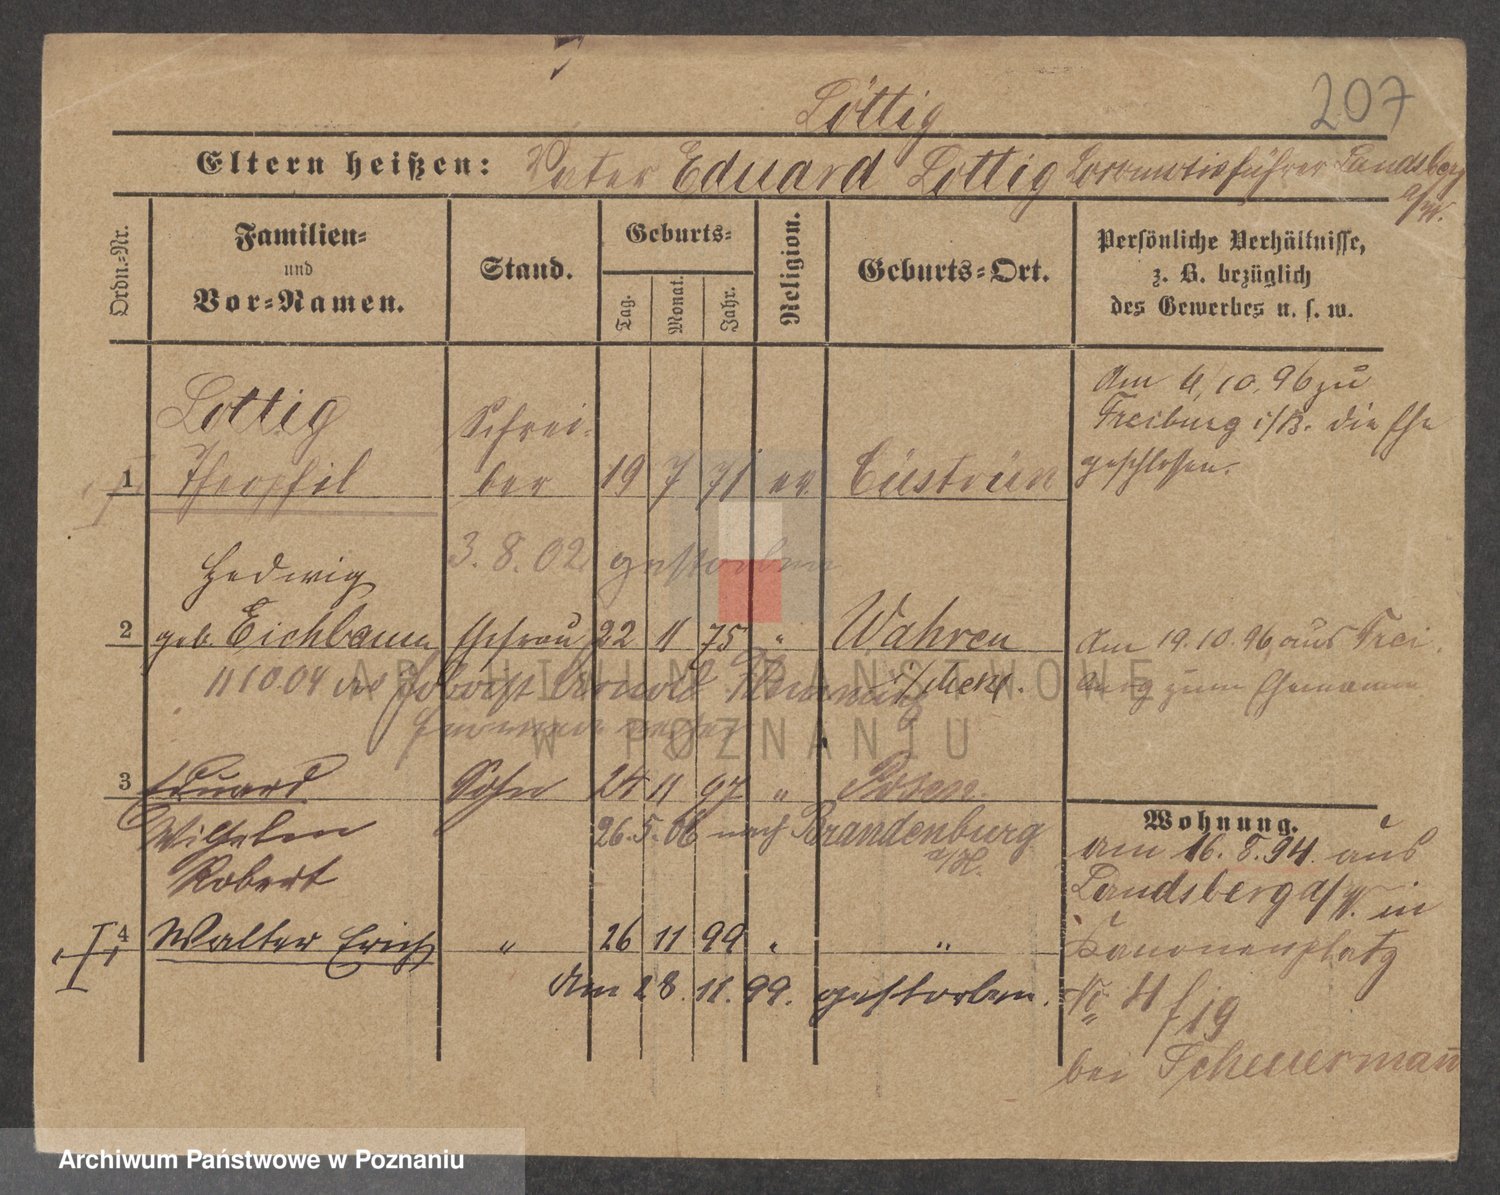 207
Löttig
Eltern heißen: Vater Eduard Lottig Locomotivführer Landsberg
a/W.
Ordn.-Nr.
Familien-
und
Vor-Namen.
Stand.
Geburts-
Tag.
Monat.
Jahr.
Religion.
Geburts-Ort.
Persönliche Verhältnisse,
z. B. bezüglich
des Gewerbes u. s. w.
Lottig
Theophil
1
Schrei-
ber
19 7 71 ev. Cüstrin
Am 4.10.96 zu
Freiburg i/B. die Ehe
geschlossen.
3.8.02 gestorben
Hedwig
2 geb. Eichbaum Ehefrau 22 11 75 " Wahren
i/Meckl.
Am 19.10.96 aus Frei-
burg zum Ehemann
11 10 04
3 Eduard Sohn 24 11 97 " Posen.
Wilhelm
Robert
26.5.06 nach Brandenburg
a/H.
4 Walter Erich " 26 11 99 " "
Am 28.11.99. gestorben.
Wohnung.
am 16.8.94. aus
Landsberg a/W. in
Kanonenplatz
No 4
bei Scheuermann
ARCHIWUM PAŃSTWOWE
W POZNANIU
Archiwum Państwowe w Poznaniu